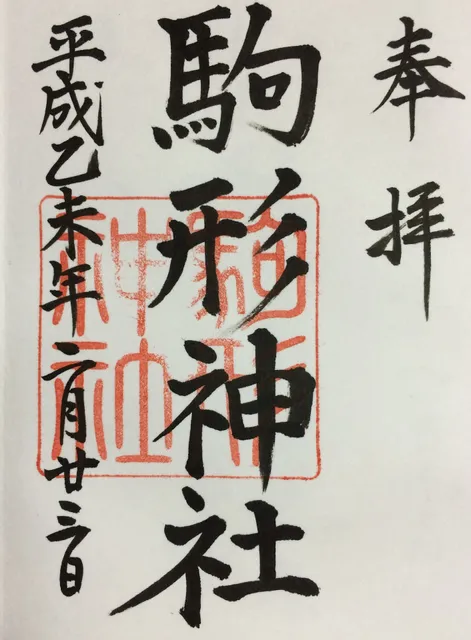 奉拝
駒形神社
平成乙未年二月廿三日
駒形
神社